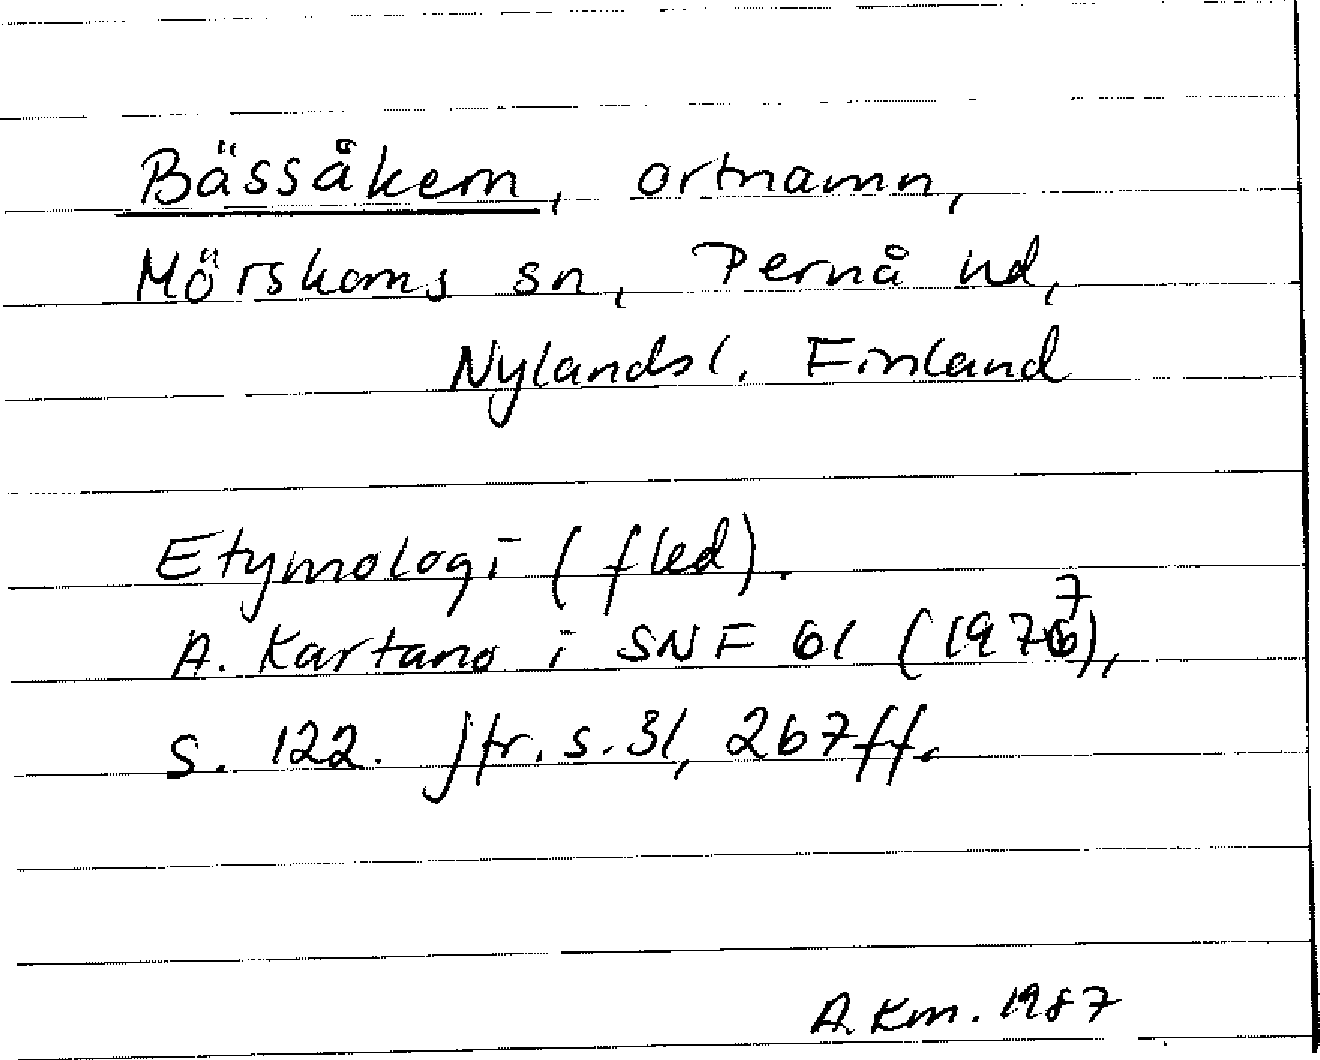 Bässåkern, ortnamn,
Mörskoms sn, Pernå hd,
Nylands l. Finland
Etymologi (fled).
A. Kartano i SNF 61 (1977),
s. 122. Jfr. s. 31, 267 ff.
A. Km. 1987